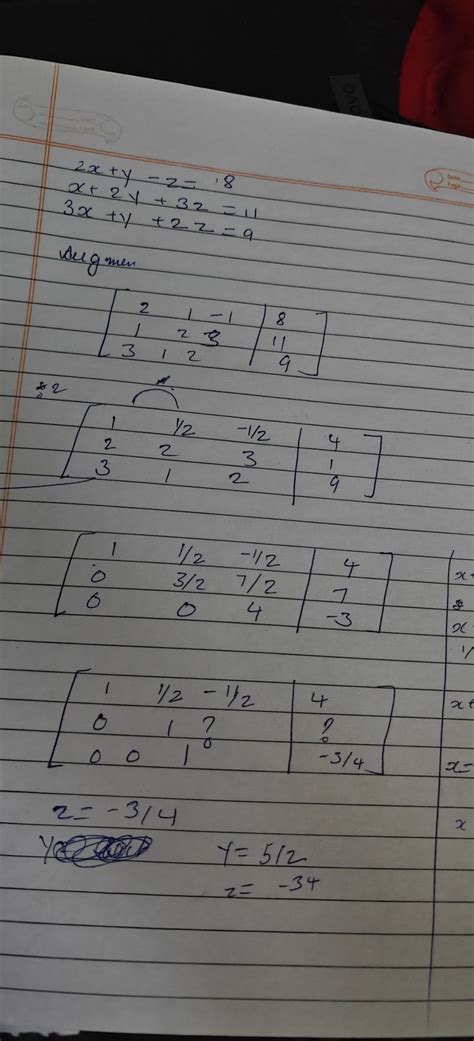 2x + y - z = 8
x + 2y + 3z = 11
3x + y + 2z = 9
Augmen
2 1 -1 | 8
1 2 3 | 11
3 1 2 | 9
2
1 1/2 -1/2 | 4
2 2 3 | 1
3 1 2 | 9
1 1/2 -1/2 | 4
0 3/2 7/2 | 7
0 0 4 | -3
x
x
1/
1 1/2 -1/2 | 4
0 1 ? | ?
0 0 1 | -3/4
x
x =
x
z = -3/4
y = 5/2
z = -34